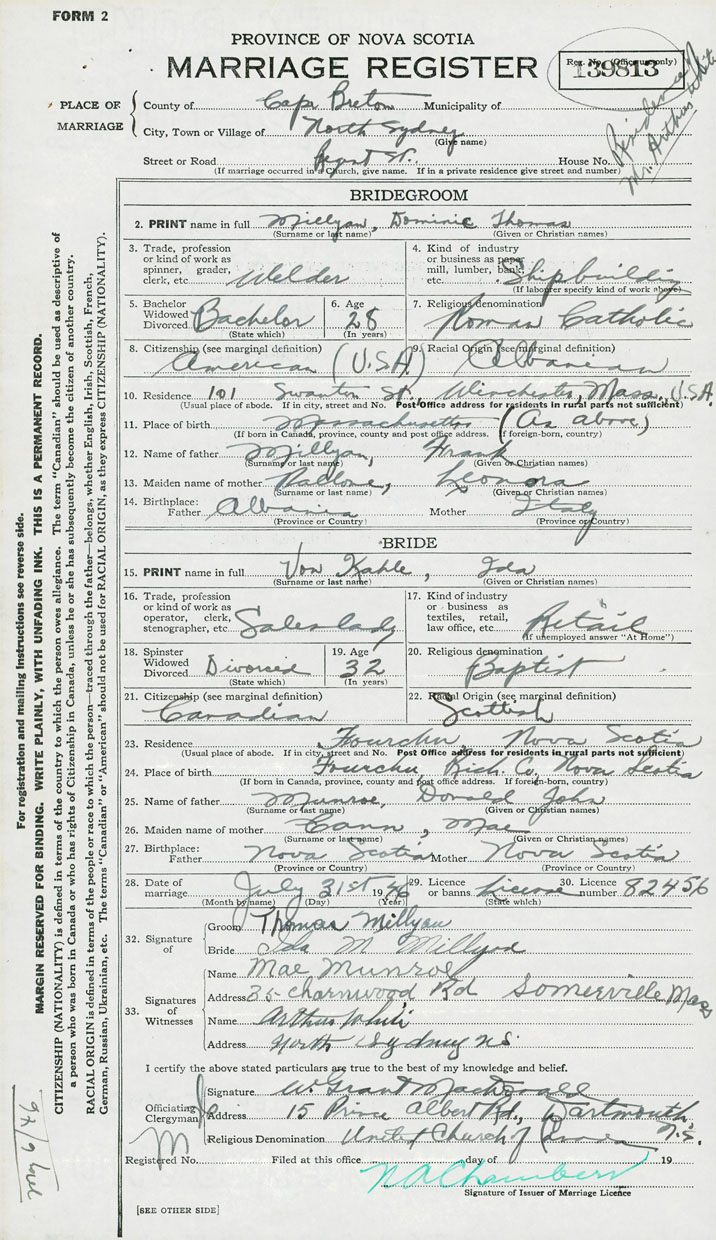 FORM 2
PROVINCE OF NOVA SCOTIA
MARRIAGE REGISTER
Reg. No. (Office use only)
139813
PLACE OF MARRIAGE
County of Cape Breton Municipality of
City, Town or Village of North Sydney
(Give name)
Street or Road St. House No.
Residence Mr. Arthur White
(If marriage occurred in a Church, give name. If in a private residence give street and number)
BRIDEGROOM
2. PRINT name in full Millyan, Dominic Thomas
(Surname or last name) (Given or Christian names)
3. Trade, profession or kind of work as spinner, grader, clerk, etc. Welder
4. Kind of industry or business as paper mill, lumber, bank, etc. Shipbuilding
(If laborer specify kind of work above)
5. Bachelor Widowed Divorced Bachelor
(State which)
6. Age 28
(In years)
7. Religious denomination Roman Catholic
8. Citizenship (see marginal definition) American (U.S.A)
9. Racial Origin (see marginal definition) Albanian
10. Residence 101 Swanton St., Winchester, Mass., U.S.A.
(Usual place of abode. If in city, street and No. Post Office address for residents in rural parts not sufficient)
11. Place of birth Massachusetts (As above)
(If born in Canada, province, county and post office address. If foreign-born, country)
12. Name of father Millyan, Frank
(Surname or last name) (Given or Christian names)
13. Maiden name of mother Leonora
(Surname or last name) (Given or Christian names)
14. Birthplace: Father Albania Mother Italy
(Province or Country) (Province or Country)
BRIDE
15. PRINT name in full Von Kahle, Ida
(Surname or last name) (Given or Christian names)
16. Trade, profession or kind of work as operator, clerk, stenographer, etc. Saleslady
17. Kind of industry or business as textiles, retail, law office, etc. Retail
(If unemployed answer "At Home")
18. Spinster Widowed Divorced Divorced
(State which)
19. Age 32
(In years)
20. Religious denomination Baptist
21. Citizenship (see marginal definition) Canadian
22. Racial Origin (see marginal definition) Scottish
23. Residence Fourchu, Nova Scotia
(Usual place of abode. If in city, street and No. Post Office address for residents in rural parts not sufficient)
24. Place of birth Fourchu, Rich. Co, Nova Scotia
(If born in Canada, province, county and post office address. If foreign-born, country)
25. Name of father Munroe, Donald John
(Surname or last name) (Given or Christian names)
26. Maiden name of mother Cann, Mae
(Surname or last name) (Given or Christian names)
27. Birthplace: Father Nova Scotia Mother Nova Scotia
(Province or Country) (Province or Country)
28. Date of marriage July 31st 19
(Month by name) (Day) (Year)
29. Licence or banns License
(State which)
30. Licence number 82456
32. Signature of
Groom Thomas Millyan
Bride Ida M Millyan
33. Signatures of Witnesses
Name Mae Munroe
Address 35 Charnwood Rd Somerville Mass
Name Arthur White
Address North Sydney N.S.
I certify the above stated particulars are true to the best of my knowledge and belief.
Officiating Clergyman
Signature W. Grant MacDonald
Address 15 Prince Albert Rd., Dartmouth, N.S.
Religious Denomination United Church of Canada
Registered No. Filed at this office day of 19
N A Chambers
Signature of Issuer of Marriage Licence
[SEE OTHER SIDE]
For registration and mailing instructions see reverse side.
MARGIN RESERVED FOR BINDING. WRITE PLAINLY, WITH UNFADING INK. THIS IS A PERMANENT RECORD.
CITIZENSHIP (NATIONALITY) is defined in terms of the country to which the person owes allegiance. The term "Canadian" should be used as descriptive of
a person who was born in Canada or who has rights of Citizenship in Canada, unless he or she has subsequently become the citizen of another country.
RACIAL ORIGIN is defined in terms of the people or race to which the person—traced through the father—belongs, whether English, Irish, Scottish, French,
German, Russian, Ukrainian, etc. The terms "Canadian" or "American" should not be used for RACIAL ORIGIN, as they express CITIZENSHIP (NATIONALITY).
M